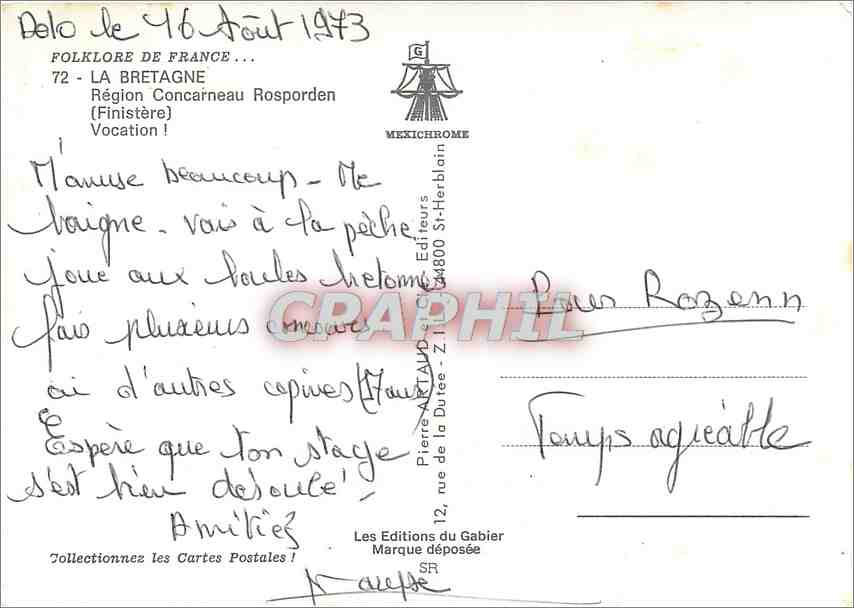 le 16 Août 1973
FOLKLORE DE FRANCE...
72 - LA BRETAGNE
Région Concarneau Rosporden
(Finistère)
Vocation !
G
MEXICHROME
M'amuse beaucoup - Me
baigne - vais à la pêche
joue aux boules bretonnes
fais plusieurs concours
ai d'autres copines (17 ans)
Espère que ton stage
s'est bien déroulé -
Amitiés
Collectionnez les Cartes Postales !
Pierre ARTAUD et Cie Editeurs
12, rue de la Dutée - Z.I.L. 44800 St-Herblain
Les Editions du Gabier
Marque déposée
SR
Pour Rozenn
Temps agréable
CPAPHIL